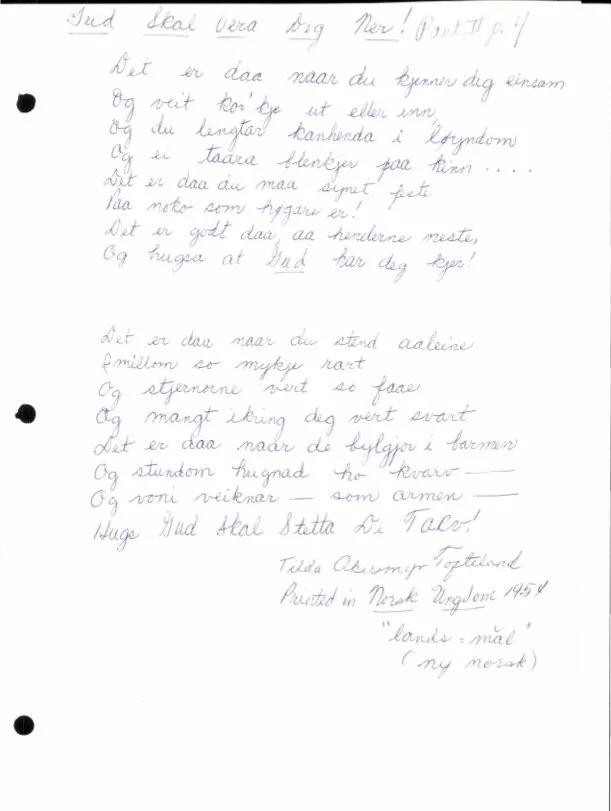 Gud Skal Vera Deg Nær! Part II p. 4
Det er daa naar du kjenner deg einsam
Og veit kor'kje ut eller inn,
Og du lengtar kanhenda i løyndom
Og ei taara blenkjer paa kinn ....
Det er daa du maa synet feste
Paa noko som høgare er!
Det er godt daa, aa henderne neste,
Og hugsa at Gud har deg kjær!
Det er daa naar du stend aaleine
Imillom so mykje rart
Og stjernorne vert so faae
Og mangt ikring deg vert svart
Det er daa naar de bylgjor i barmen
Og stundom hugnad ho kvarv —
Og voni veiknar — som armen —
Hugs Gud Skal Stetta Di Tarv!
Tilda
Printed in Norsk Ungdom 1954
"lands = mål"
(ny norsk)